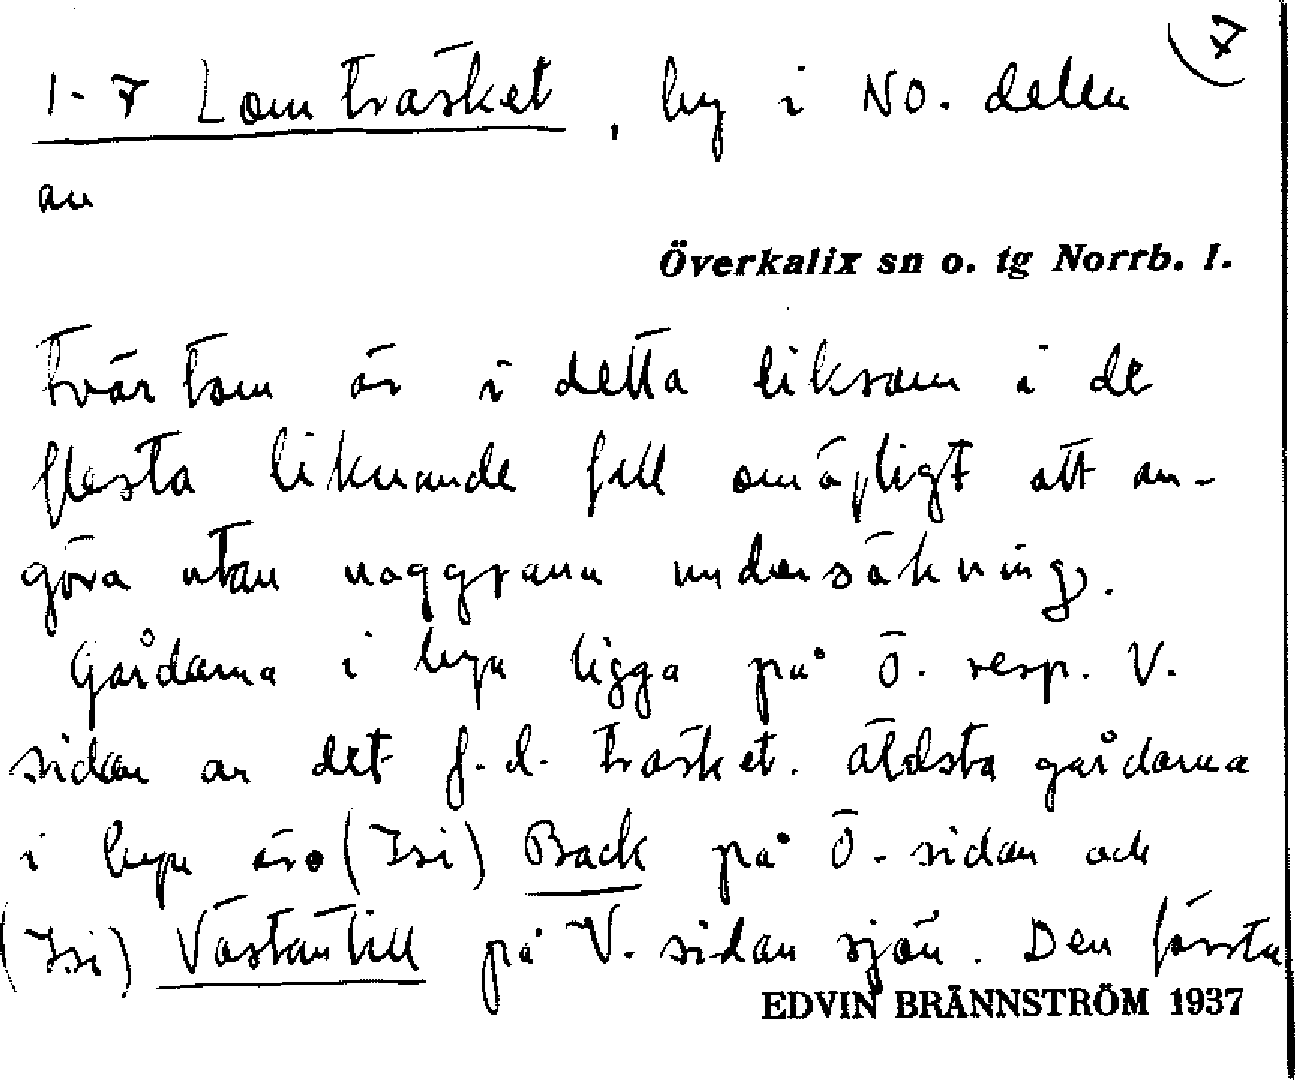 7
1-7 Lomträsket, by i NO. delen
av
Överkalix sn o. tg Norrb. l.
tvärtom är i detta liksom i de
flesta liknande fall omöjligt att av-
göra utan noggrann undersökning.
Gårdarna i byn ligga på Ö. resp. V.
sidan av det f.d. träsket. Äldsta gårdarna
i byn äro (Isi) Back på Ö-sidan och
(Isi) Västantill på V. sidan sjön. Den första
EDVIN BRÄNNSTRÖM 1937